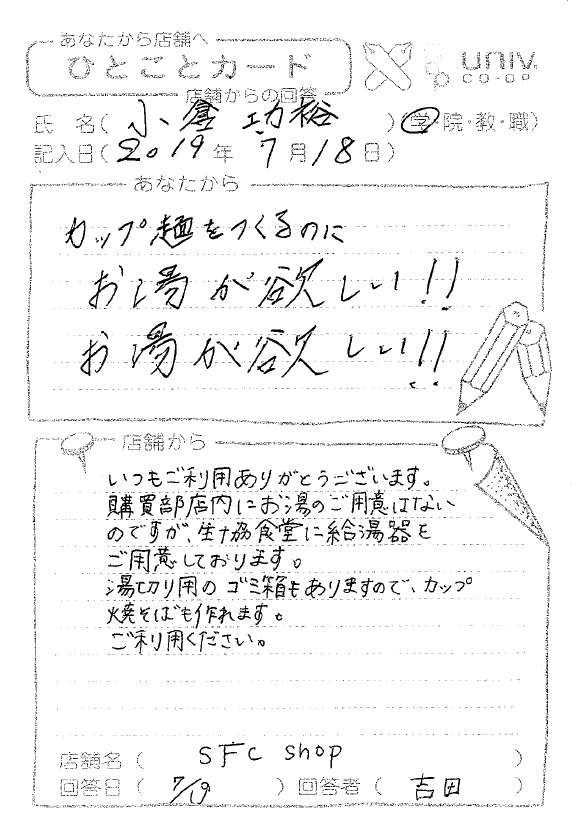 あなたから店舗へ
ひとことカード
店舗からの回答
univ.
CO-OP
氏 名(小倉 功裕)(学・院・教・職)
記入日(2019年7月18日)
あなたから
カップ麺をつくるのに
お湯が欲しい!!
お湯が欲しい!!
店舗から
いつもご利用ありがとうございます。
購買部店内にお湯のご用意はない
のですが、生協食堂に給湯器を
ご用意しております。
湯切り用のゴミ箱もありますので、カップ
焼そばも作れます。
ご利用ください。
店舗名( SFC shop )
回答日( 7/19 )回答者( 吉田 )